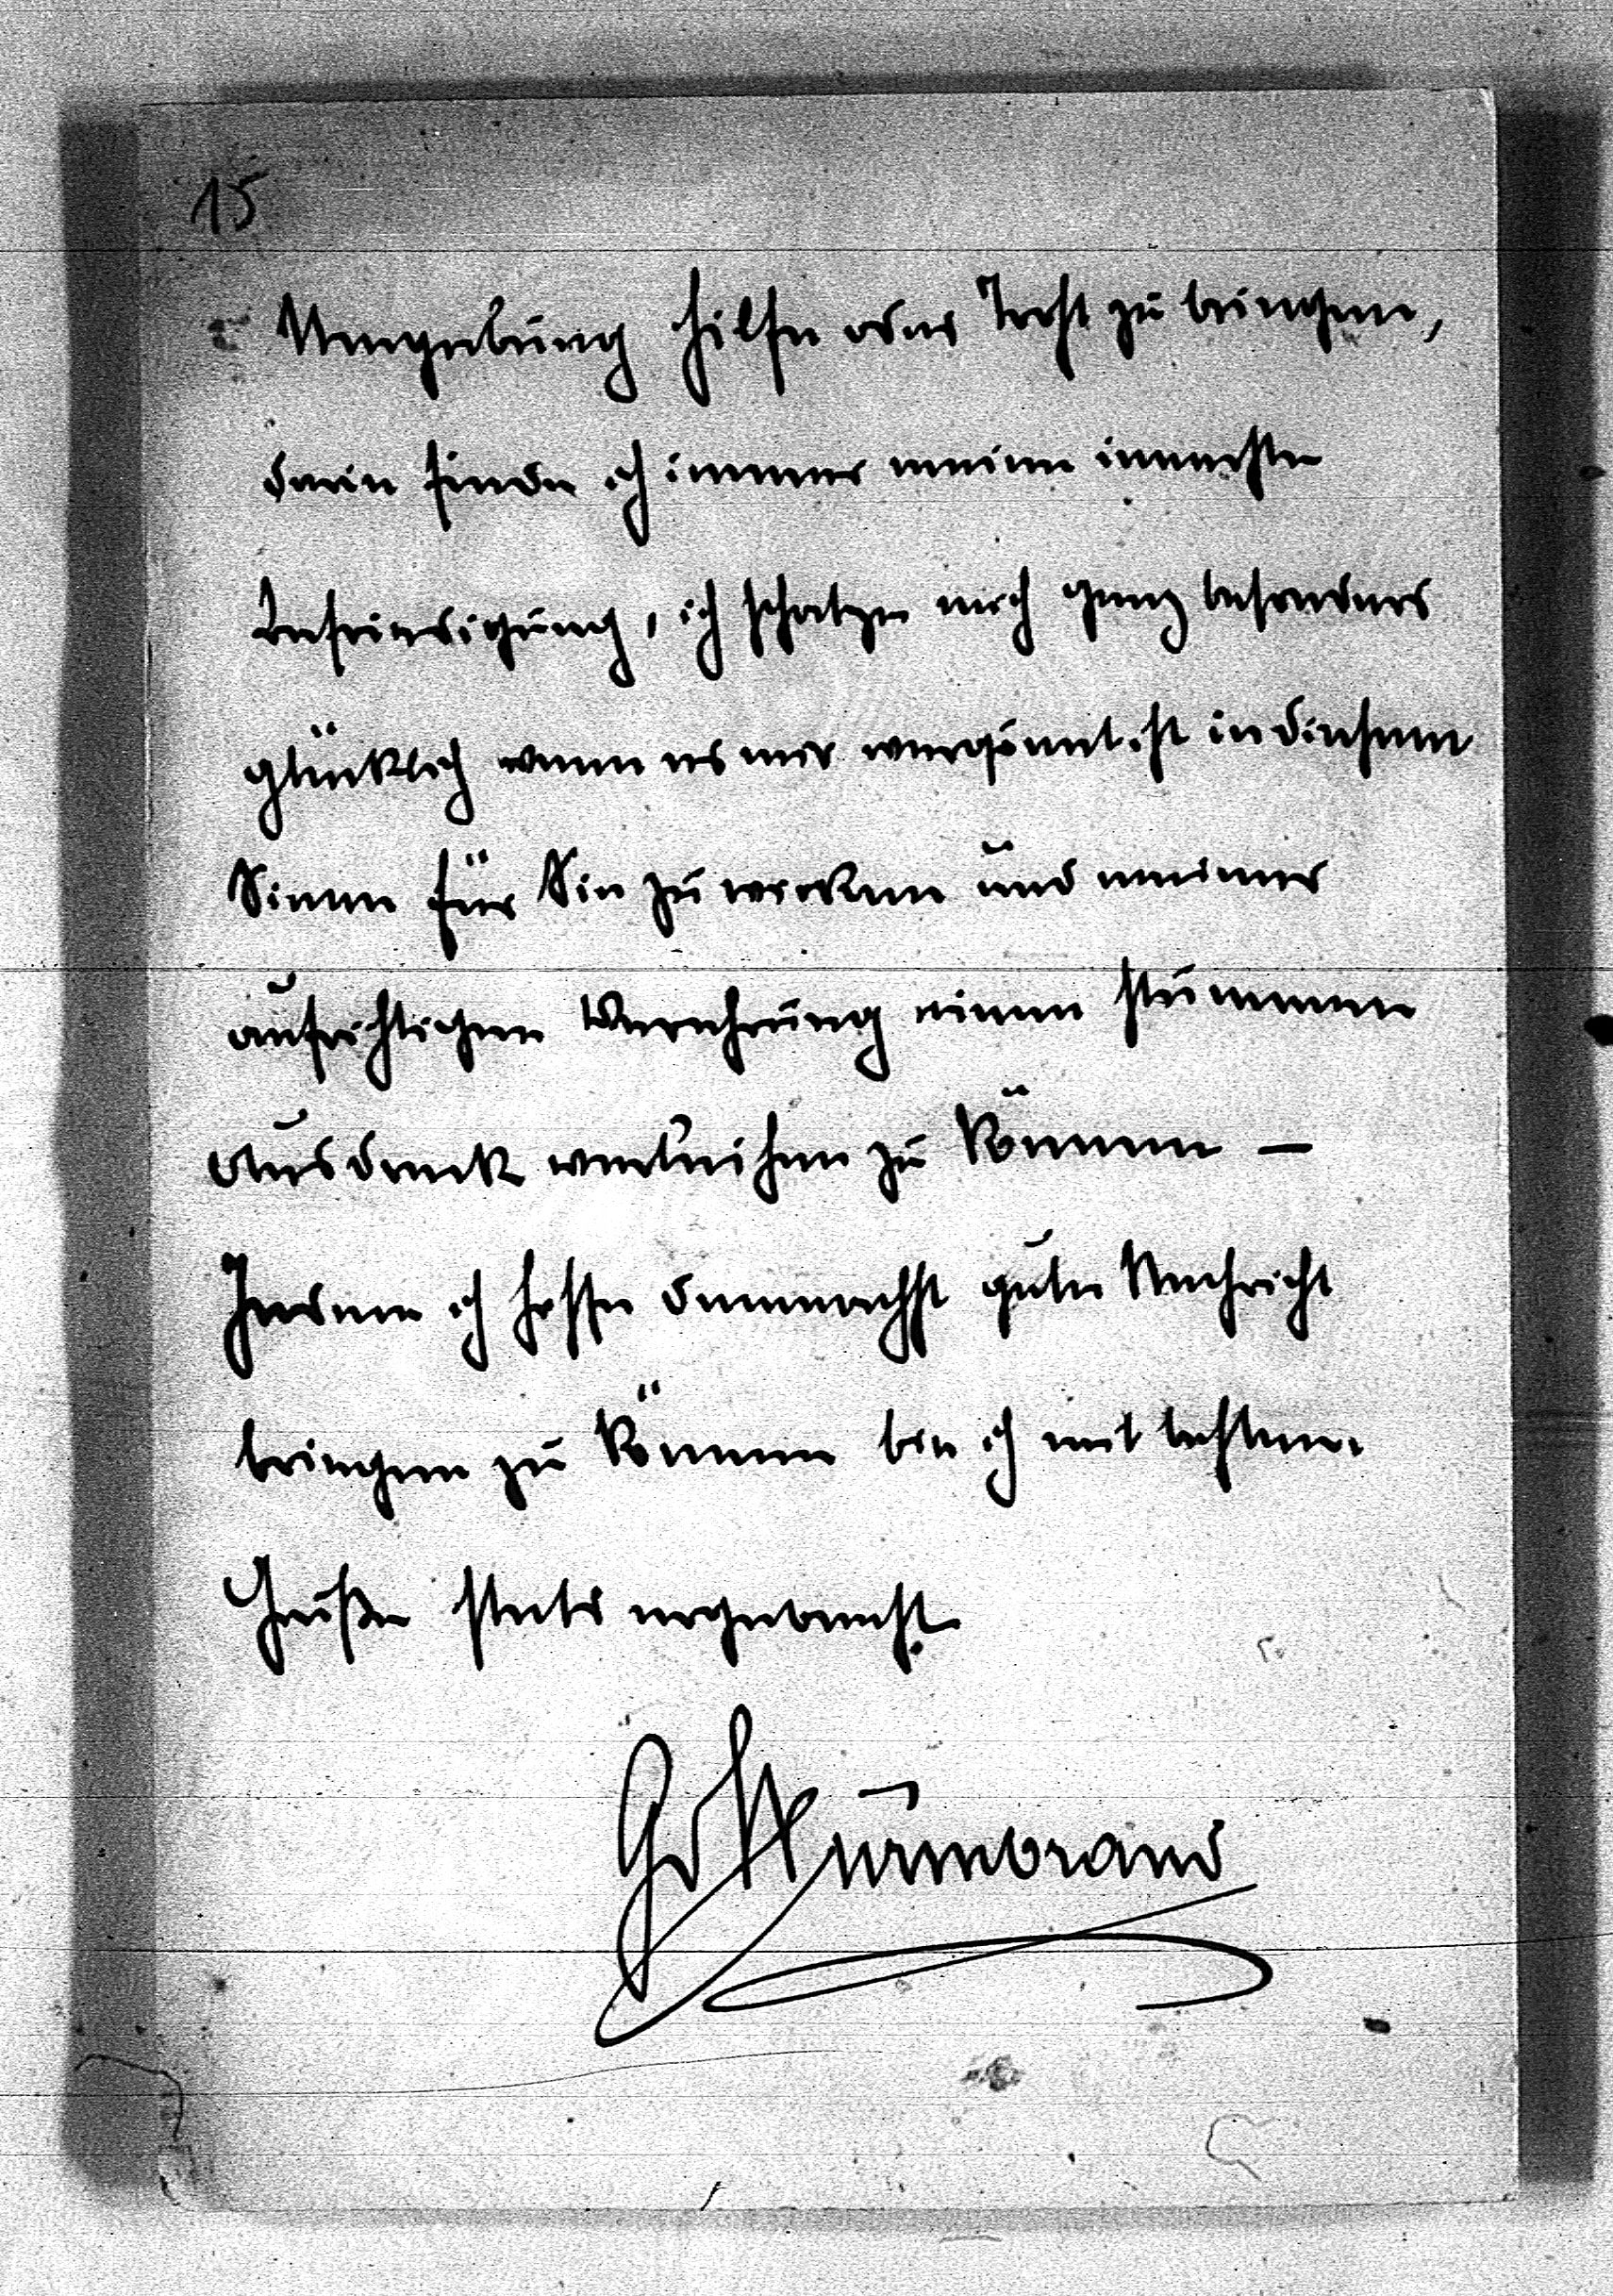 15
Umgebung Hilfe oder Trost zu bringen,
darin finde ich immer meine innerste
Befriedigung, ich schatze mich ganz besonders
glücklich wenn es mir vergönnt ist in diesem
Sinne für Sie zu wirken und meiner
aufrichtigen Verehrung einen stummen
Ausdruck verleihen zu können —
Indem ich hoffe demnachst gute Nachricht
bringen zu können bin ich mit bestem
Gruße stets ergebenst
GWurmbrand